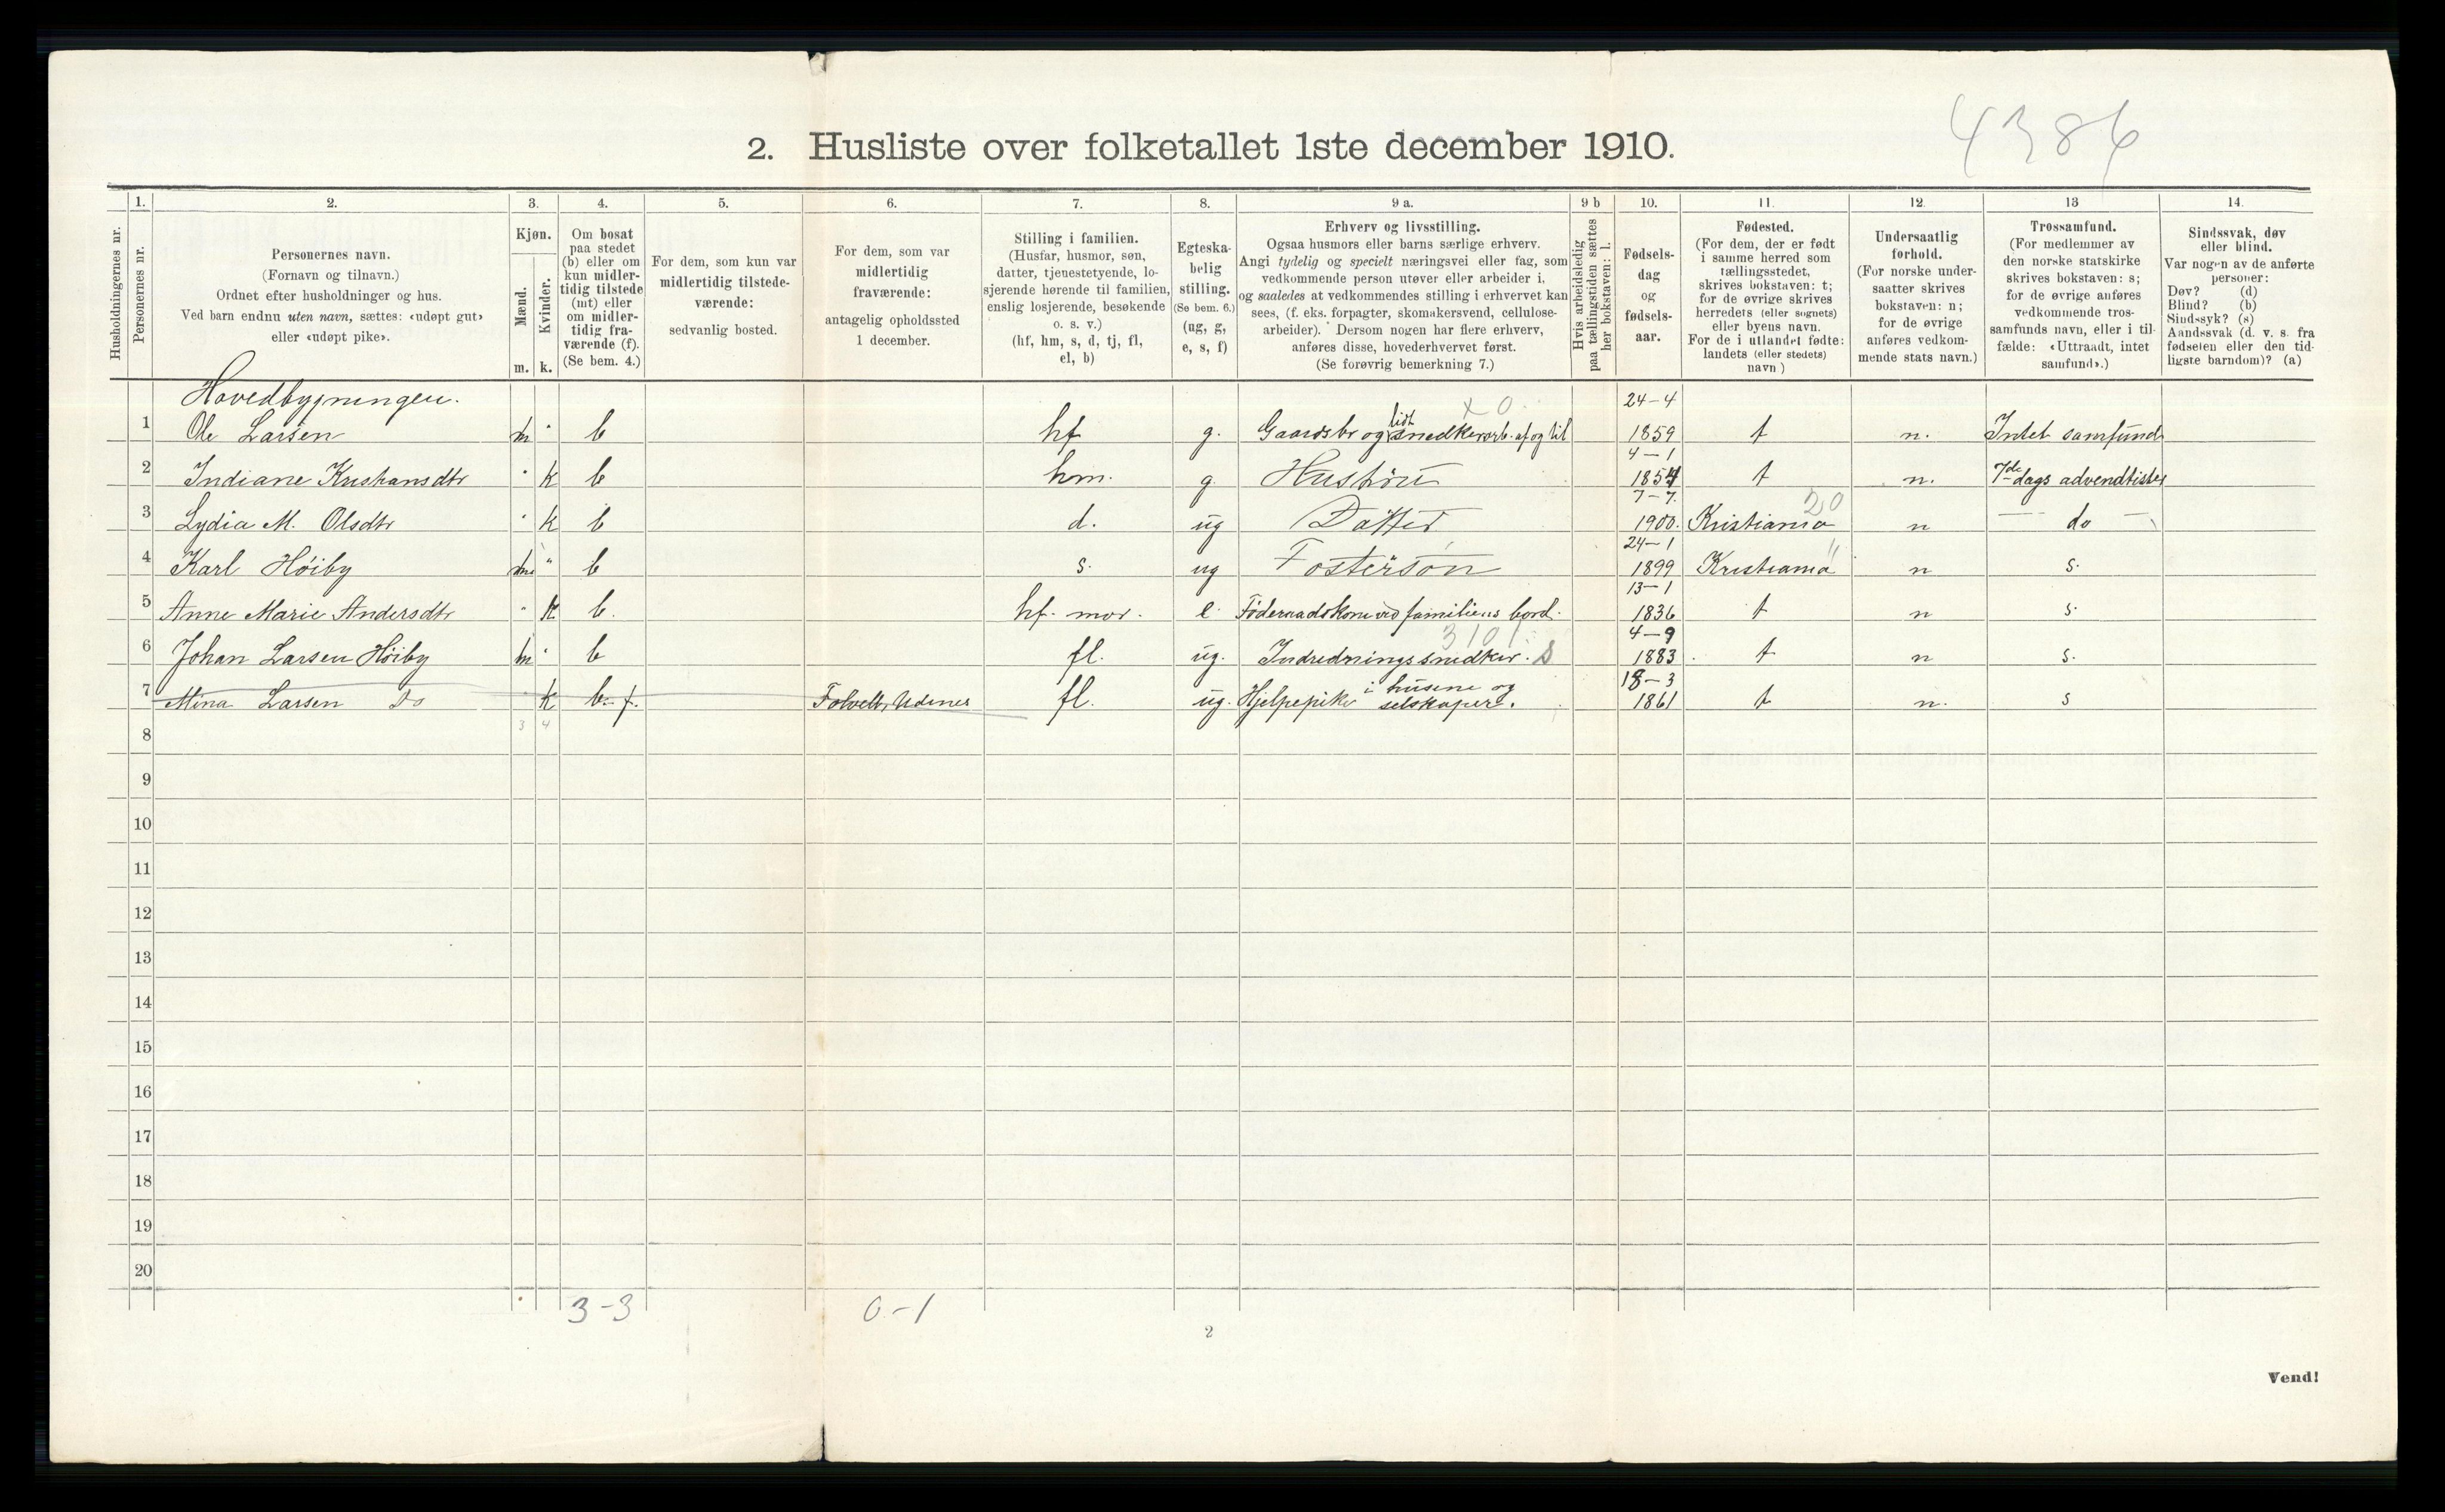 4386
2. Husliste over folketallet 1ste december 1910.
Husholdningernes nr.
1.
Personernes nr.
2.
Personernes navn.
(Fornavn og tilnavn.)
Ordnet efter husholdninger og hus.
Ved barn endnu uten navn, sættes: «udøpt gut»
eller «udøpt pike».
3.
Kjøn.
Mænd.
Kvinder.
m. k.
4.
Om bosat
paa stedet
(b) eller om
kun midler-
tidig tilstede
(mt) eller
om midler-
tidig fra-
værende (f).
(Se bem. 4.)
5.
For dem, som kun var
midlertidig tilstede-
værende:
sedvanlig bosted.
6.
For dem, som var
midlertidig
fraværende:
antagelig opholdssted
1 december.
7.
Stilling i familien.
(Husfar, husmor, søn,
datter, tjenestetyende, lo-
sjerende hørende til familien,
enslig losjerende, besøkende
o. s. v.)
(hf, hm, s, d, tj, fl,
el, b)
8.
Egteska-
belig
stilling.
(Se bem. 6.)
(ug, g,
e, s, f)
9 a.
Erhverv og livsstilling.
Ogsaa husmors eller barns særlige erhverv.
Angi tydelig og specielt næringsvei eller fag, som
vedkommende person utøver eller arbeider i,
og saaledes at vedkommendes stilling i erhvervet kan
sees, (f. eks. forpagter, skomakersvend, cellulose-
arbeider). Dersom nogen har flere erhverv,
anføres disse, hovederhvervet først.
(Se forøvrig bemerkning 7.)
9 b
Hvis arbeidsledig
paa tællingstiden sættes
her bokstaven: l.
10.
Fødsels-
dag
og
fødsels-
aar.
11.
Fødested.
(For dem, der er født
i samme herred som
tællingsstedet,
skrives bokstaven: t;
for de øvrige skrives
herredets (eller sognets)
eller byens navn.
For de i utlandet fødte:
landets (eller stedets)
navn)
12.
Undersaatlig
forhold.
(For norske under-
saatter skrives
bokstaven: n;
for de øvrige
anføres vedkom-
mende stats navn.)
13
Trossamfund.
(For medlemmer av
den norske statskirke
skrives bokstaven: s;
for de øvrige anføres
vedkommende tros-
samfunds navn, eller i til-
fælde: «Uttraadt, intet
samfund».)
14.
Sindssvak, døv
eller blind.
Var nogen av de anførte
personer:
Døv? (d)
Blind? (b)
Sindssyk? (s)
Aandssvak (d. v. s. fra
fødselen eller den tid-
ligste barndom)? (a)
Hovedbygningen.
1 Ole Larsen m " b hf g. Gaardsbr og lidt snedkerarb. af og til x 0 24-4 1859 t n. Intet samfund
2 Indiane Kristiansdtr " k b hm. g Hustru 4-1 1854 t n. 7de dags advendtister
3 Lydia M. Olsdtr " k b d. ug Datter 7-7. 1900. Kristiania 20 n — do —
4 Karl Höiby m " b s. ug Fosterson 24-1 1899 Kristiania " n s.
5 Anne Marie Andersdtr " k b. hf. mor. e. Föderaadskone ved familiens bord. 13-1 1836 t n s.
6 Johan Larsen Höiby m " b fl. ug. Indredningssnedker. 3101 s 4-9 1883 t n s.
7 Mina Larsen Do k b f. fl. ug. Hjelpepike i husene og selskaper. 18-3 1861 t n. s
3 4
8
9
10
11
12
13
14
15
16
17
18
19
20
3-3
0-1
2
Vend!